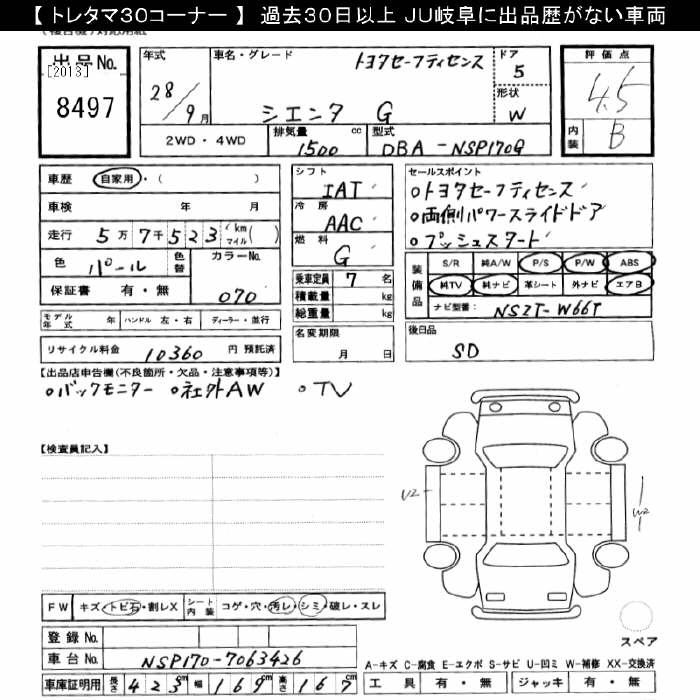 【トレタマ30コーナー】過去30日以上JU岐阜に出品歴がない車両
出品No.
[2013]
8497
年式
28/9月
車名・グレード
トヨタセーフティセンス
シエンタ G
ドア
5
形状
W
評価点
4.5
内装
B
2WD・4WD
排気量 1500 cc
型式 DBA-NSP170G
車歴 自家用・( )
車検 年 月
走行 5万7千523(km マイル)
色 パール 色替
カラーNo. 070
保証書 有・無
シフト
IAT
冷房
AAC
燃料
G
乗車定員 7 名
積載量 kg
総重量 kg
セールスポイント
○トヨタセーフティセンス
○両側パワースライドドア
○プッシュスタート
装備品
S/R 純A/W P/S P/W ABS
純TV 純ナビ 革シート 外ナビ エアB
ナビ型番: NSZT-W66T
モデル年式 年 ハンドル 左・右 ディーラー・並行
名変期限
月 日
後日品
SD
リサイクル料金 10360 円 預託済
【出品店申告欄(不良箇所・欠品・注意事項等)】
○バックモニター ○社外AW ○TV
【検査員記入】
U2
W2
FW キズ・トビ石・割レX
シート内装 コゲ・穴・汚レ・シミ・破レ・スレ
スペア
登録No.
車台No. NSP170-7063426
A-キズ C-腐食 E-エクボ S-サビ U-凹ミ W-補修 XX-交換済
車庫証明用 長さ 423cm 幅 169cm 高さ 167cm
工具 有・無 ジャッキ 有・無